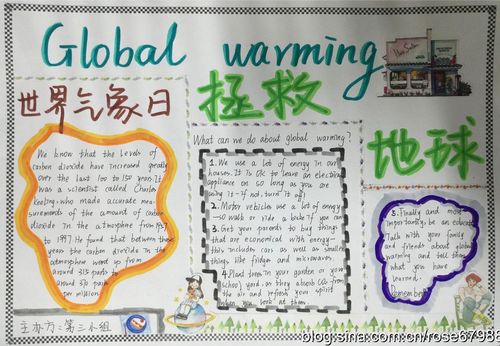 Global warming
世界气象日
拯救
地球
We know that the levels of
carbon dioxide have increased greatly
over the last 100 to 150 years. It
was a scientist called Charles
Keeling, who made accurate mea-
surements of the amount of carbon
dioxide in the atmosphere from 1957
to 1997. He found that between these
years the carbon dioxide in the
atmosphere went up from
around 315 parts to
around 370 parts
per million.
主办方:第三小组
What can we do about global warming?
1. We use a lot of energy in our
houses. It is OK to leave an electrical
appliance on so long as you are
using it - if not, turn it off!
2. Motor vehicles use a lot of energy
- so walk or ride a bike if you can.
3. Get your parents to buy things
that are economical with energy -
this includes cars as well as smaller
things like fridges and microwaves.
4. Plant trees in your garden or your
school yard, as they absorb CO2 from
the air and refresh your spirit
when you look at them.
5. Finally and most
importantly, be an educator.
Talk with your family
and friends about global
warming and tell them
what you have
learned.
Remember
blog.sina.com.cn/rose67986